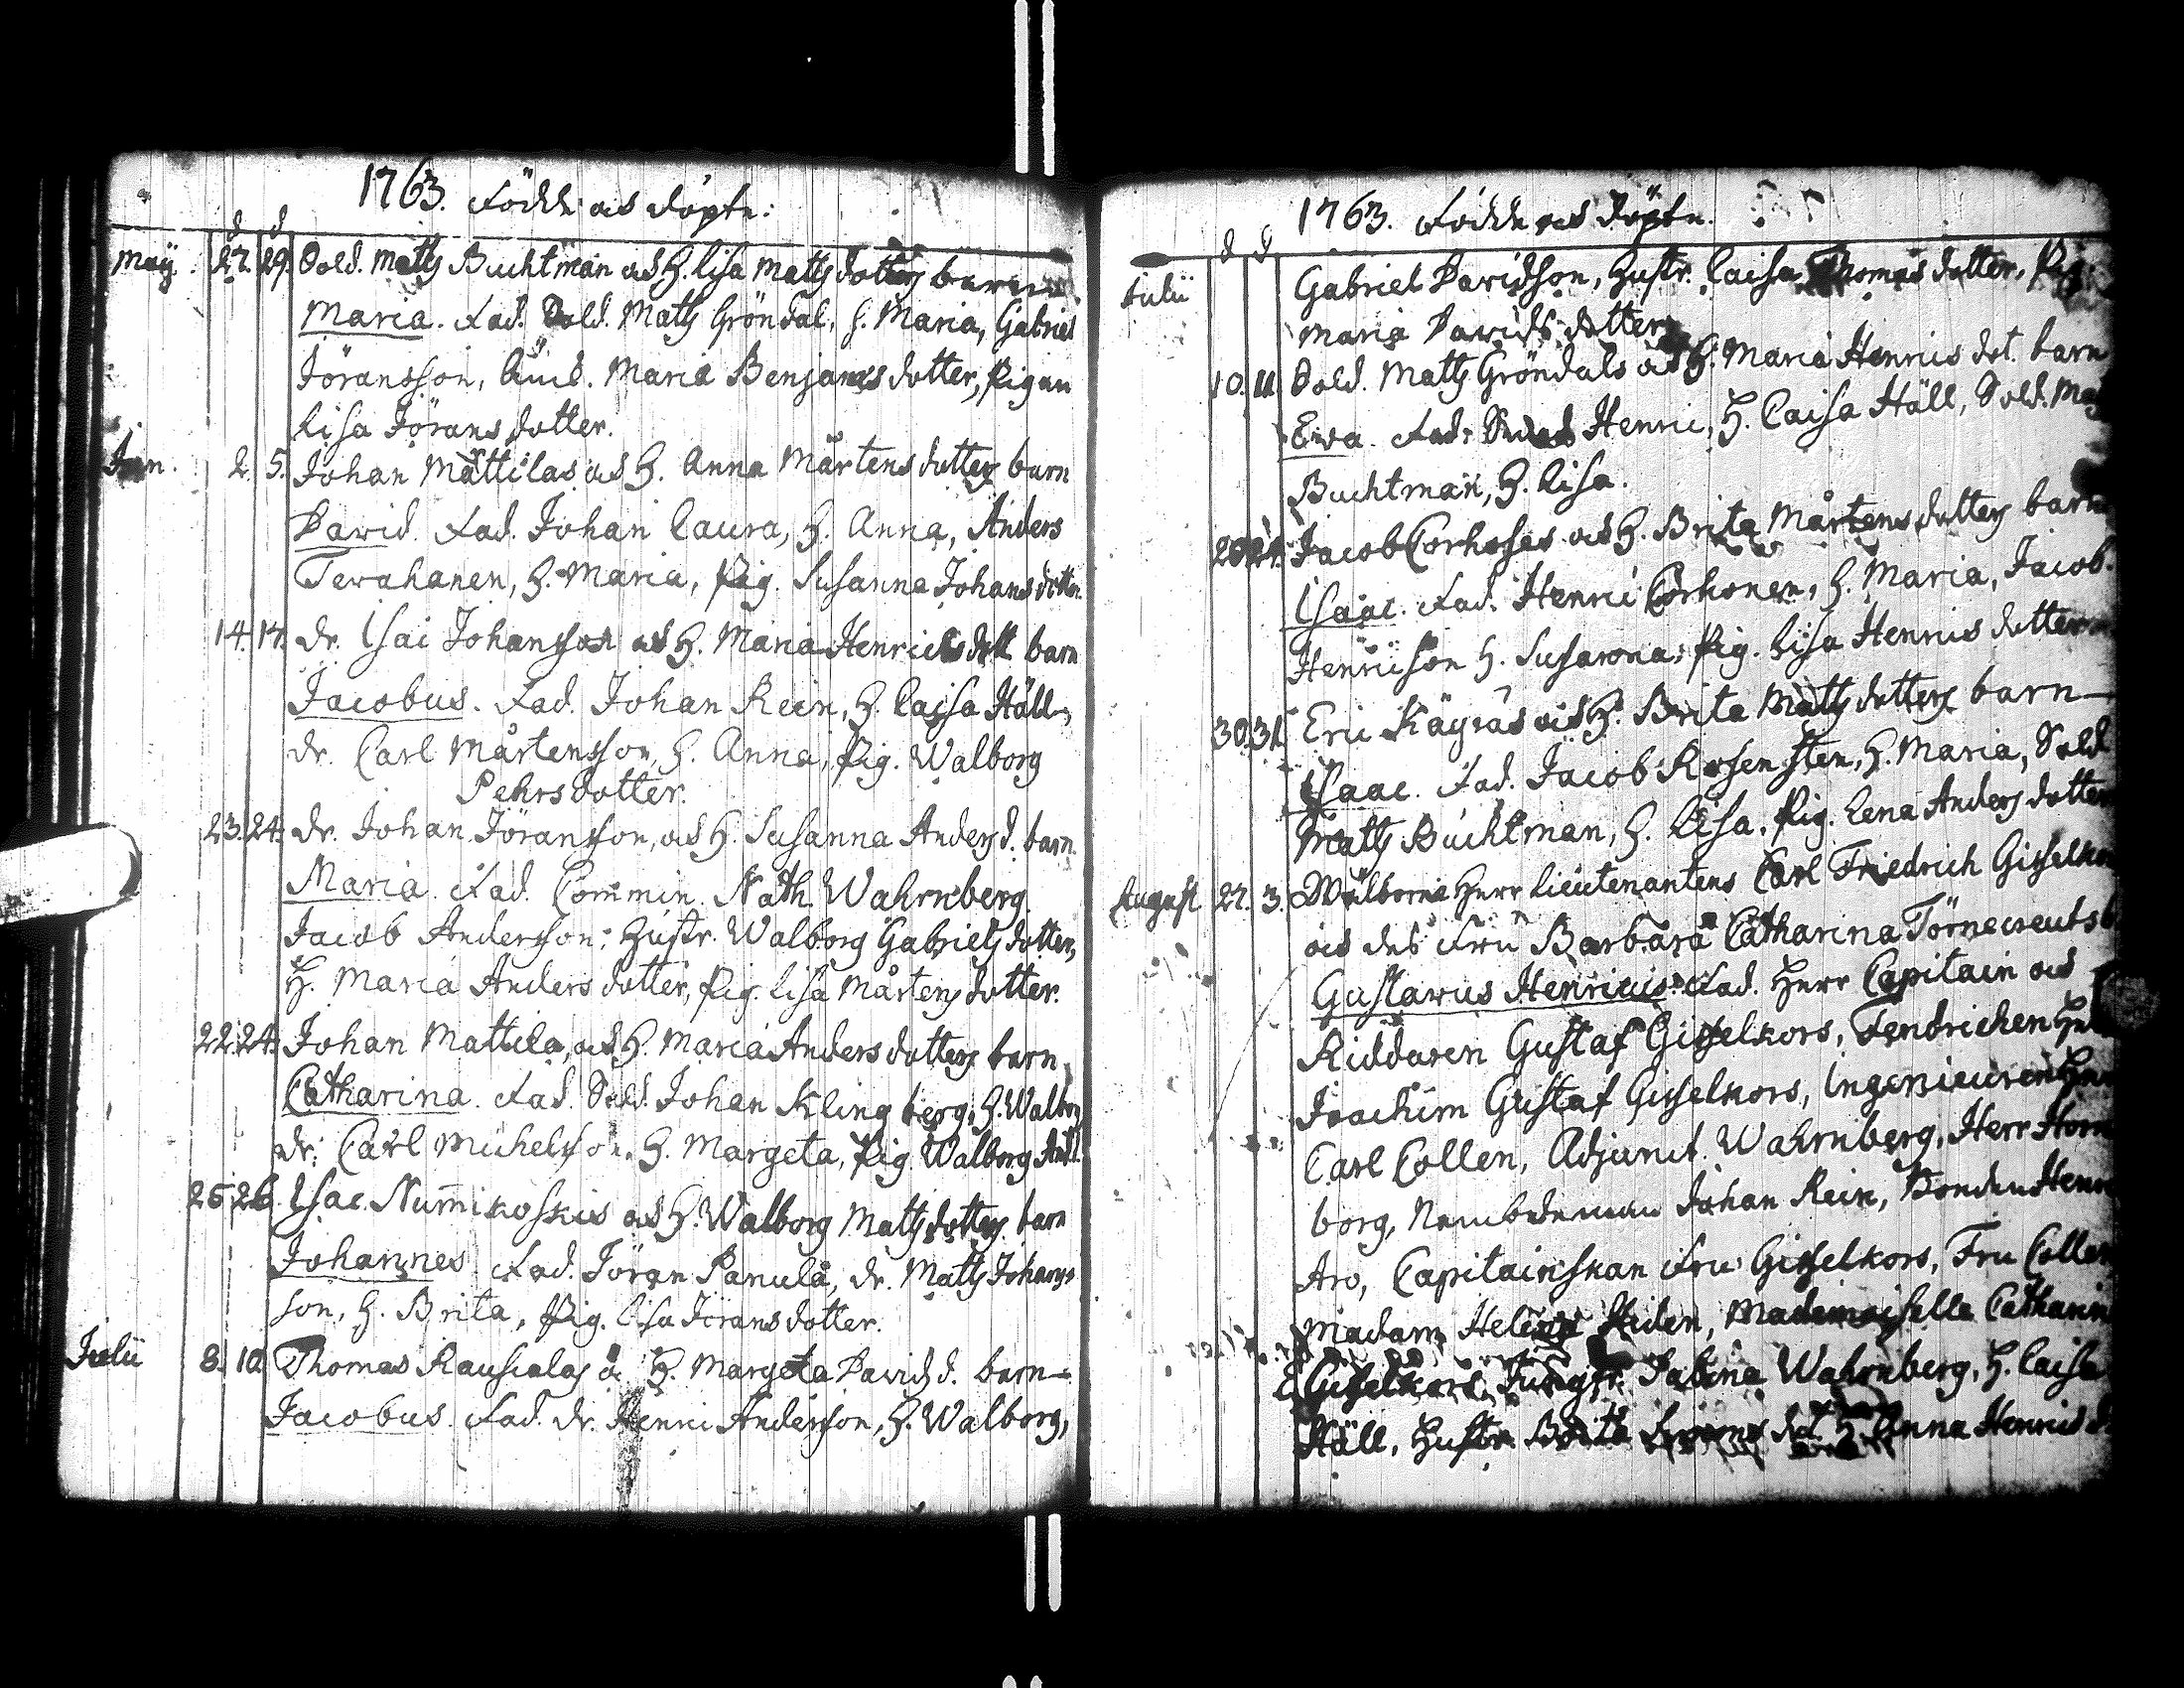 1763. Födde och döpte.
d d
Maij 27. 29. Sold. Matts Buchtman och H. Lisa Mattsdotters barn
Maria. Fad. Sold. Matts Gröndal, h. Maria, Gabriel
Jöransson, Maria Benjamsdotter, Pigan
Lisa Jöransdotter.
Jun. 2. 5. Johan Mattilas och H. Anna Mårtensdotters barn
David. Fad. Johan Laura, H. Anna, Anders
Tervahanen, H. Maria, Pig. Susanna Johansdotter.
14. 17. dr. Isac Johansson och H. Maria Henricsdott barn
Jacobus. Fad. Johan Rein, H. Caisa Häll,
dr. Carl Mårtensson, H. Anna, Pig. Walborg
Pehrsdotter.
23. 24. dr. Johan Jöransson, och H. Susanna Andersd. barn
Maria. Fad. Commin. Nath. Wahrnberg
Jacob Andersson, Hustr. Walborg Gabrielsdotter,
H. Maria Andersdotter, Pig. Lisa Mårtensdotter.
22. 24. Johan Mattila, och H. Maria Andersdotters barn
Catharina. Fad. Sold. Johan Klingberg, H. Walborg
dr. Carl Michelsson, H. Margeta, Pig. Walborg And.
25. 26. Isac Nummikoskis och H. Walborg Mattsdotters barn
Johannes. Fad. Jöran Panula, dr. Matts Johans-
son, H. Brita, Pig. Lisa Jöransdotter.
Julii 8. 10. Thomas Rausialas o H. Margeta Davidsd. barn
Jacobus. Fad. dr. Henric Andersson, H. Walborg,
1763. Födde och Döpte.
d d
Julii Gabriel Davidsson, Hustr. Caisa Thomasdotter, Pig.
Maria Davidsdotter
10. 11. Sold. Matts Gröndals och H. Maria Henricsdot. barn
Ewa. Fad. Henric, H. Caisa Häll, Sold. Mat
Buchtman, H. Lisa.
20. 24. Jacob Corhoses och H. Brita Mårtensdotters barn
Isaac. Fad. Henric Corhonen, H. Maria, Jacob
Henricson H. Susanna, Pig. Lisa Henricsdotter
30. 31. Eric Kägräs och H. Brita Mattsdotters barn
Isaac. Fad. Jacob Rosensten, H. Maria, Sold
Matts Buchtman, H. Lisa, Pig. Lena Andersdotter
August 27. 3. Wälborne Herr Lieutenantens Carl Friedrich Gisselkors
och dess Fru Barbara Catharina Törnecreuts b
Gustavus Henricus. Fad. Herr Capitain och
Riddaren Gustaf Gisselkors, Fendrichen Her
Joachim Gustaf Gisselkors, Ingenieuren Herr
Carl Collen, Adjunct. Wahrnberg, Herr Horn
borg, Nembdeman Johan Rein, Bonden Henric
Aro, Capitainskan Fru Gisselkors, Fru Collen
Madam Helena Mademoiselle Catharin
Gisselkors, Jungfr. Sabina Wahrnberg, H. Caisa
Häll, Hustr. Brita dot. H. Anna Henrics d